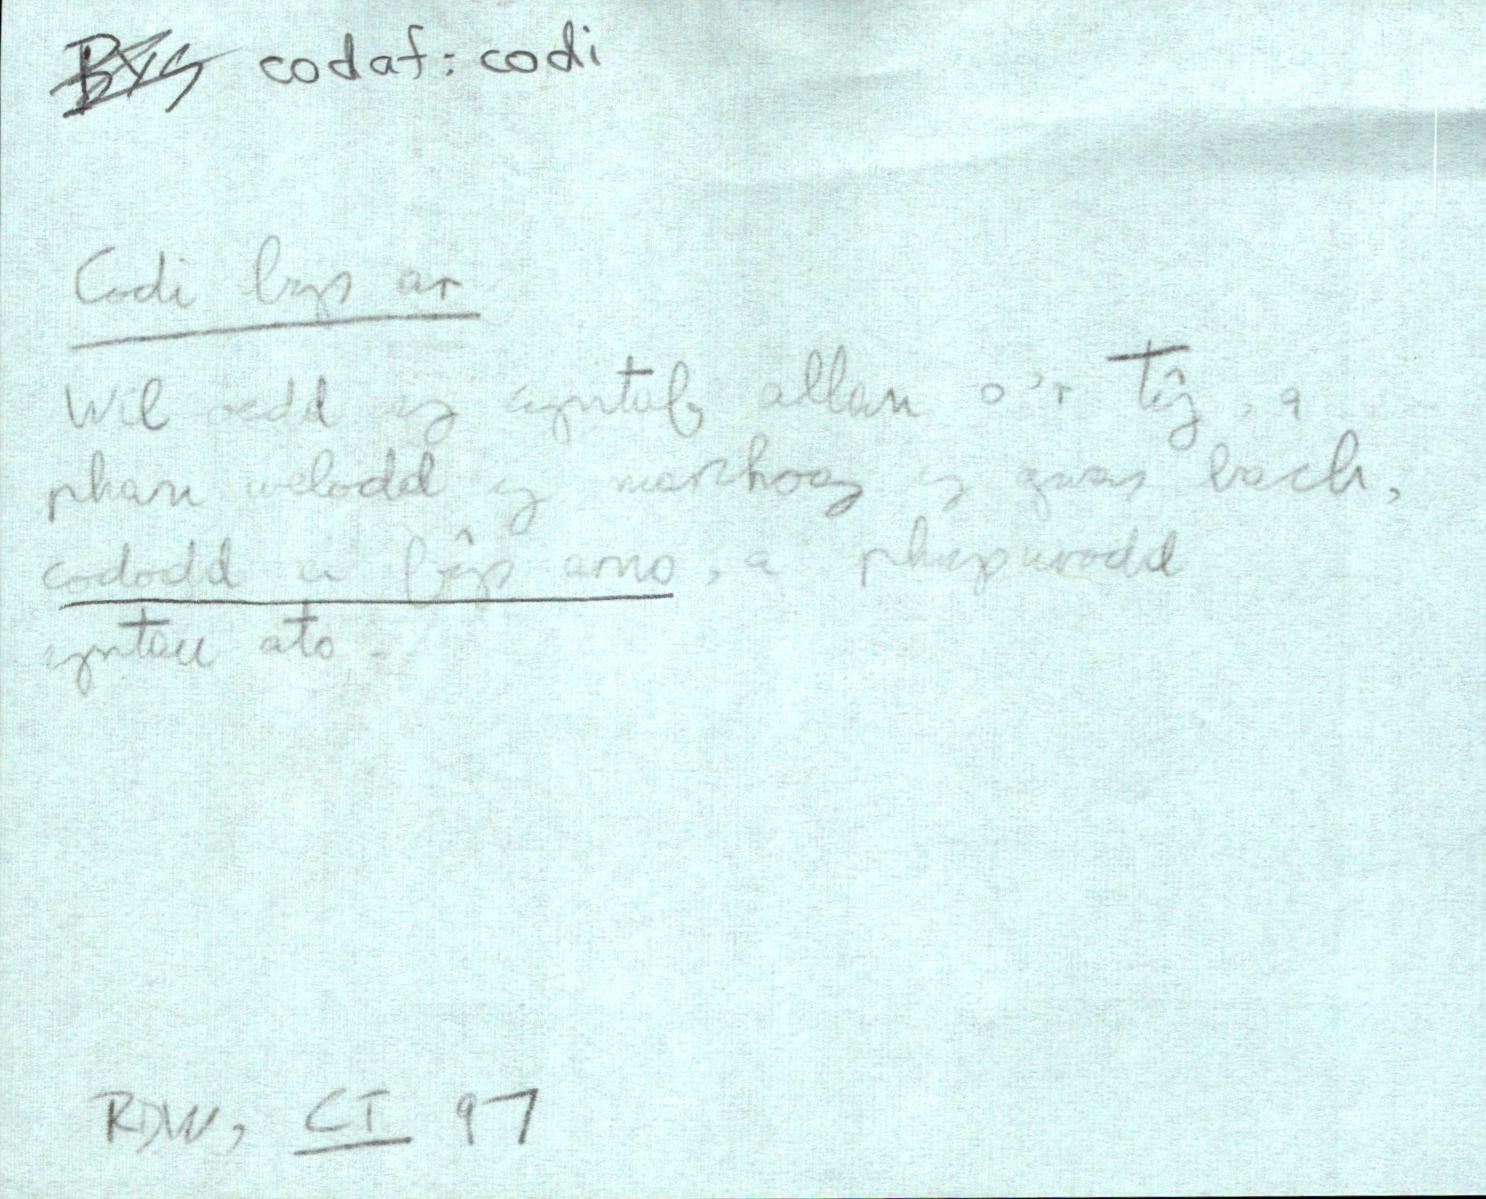 BYS codaf: codi
Codi bys ar
Wil oedd y cyntaf allan o'r tŷ, a
phan welodd y marchog y gwas bach,
cododd ei fŷs arno, a phrysurodd
yntau ato.
RDW, CT 97